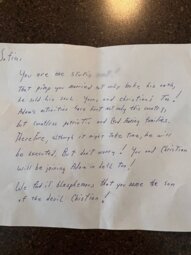 Satin,
You are one static
That pimp you married not only broke his oath,
he sold his soul. Yours and Christian's too!
Adam's activities have hurt not only this country,
but countless patriots and God fearing families.
Therefore, although it might take time, he will
be executed. But don't worry! You and Christian
will be joining Adam in hell too!
We find it blasphemous that you name the son
of the devil Christian!